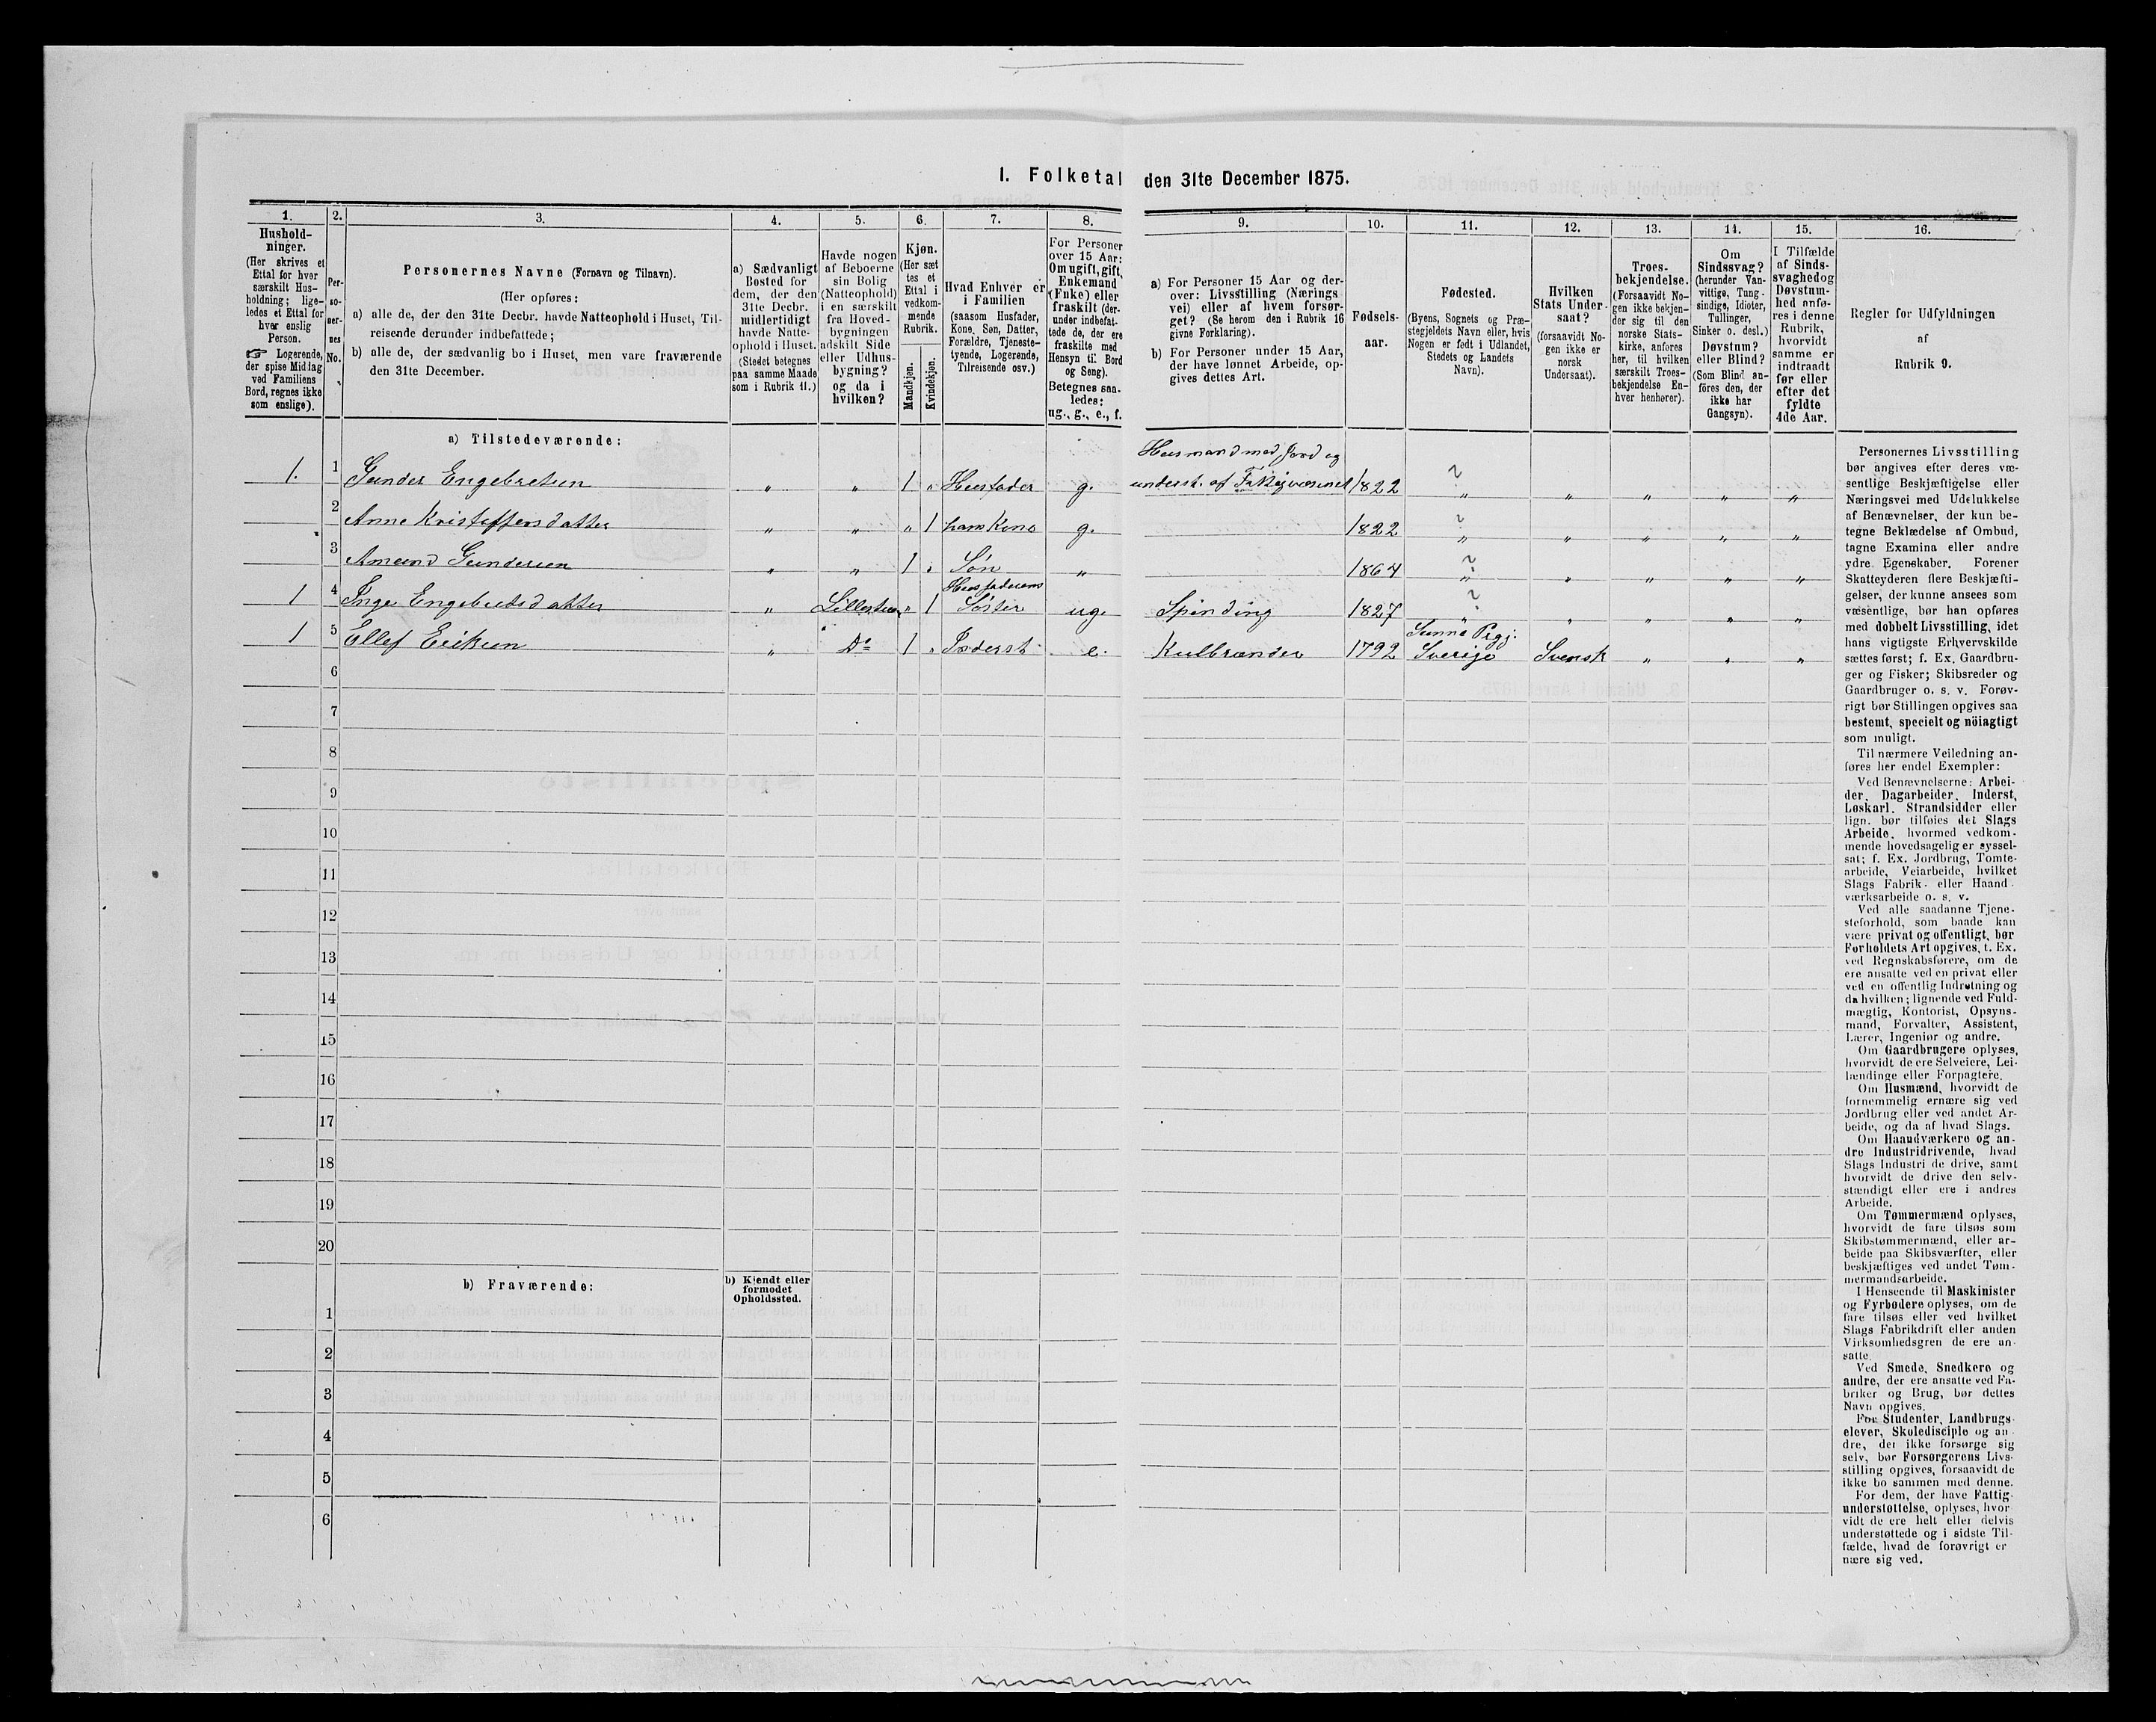 I. Folketal den 31te December 1875.
1.
Hushold-
ninger.
(Her skrives et
Ettal for hver
særskilt Hus-
holdning; lige-
ledes et Ettal for
hver enslig
Person.
☞ Logerende,
der spise Middag
ved Familiens
Bord, regnes ikke
som enslige).
2.
Per-
so-
ner-
nes
No.
3.
Personernes Navne (Fornavn og Tilnavn).
(Her opføres:
a) alle de, der den 31te Decbr. havde Natteophold i Huset, Til-
reisende derunder indbefattede;
b) alle de, der sædvanlig bo i Huset, men vare fraværende
den 31te December.
4.
a) Sædvanligt
Bosted for
dem, der den
31te Decbr.
midlertidigt
havde Natte-
ophold i Huset.
(Stedet betegnes
paa samme Maade
som i Rubrik 11.)
5.
Havde nogen
af Beboerne
sin Bolig
(Natteophold)
i en særskilt
fra Hoved-
bygningen
adskilt Side
eller Udhus-
bygning?
og da i
hvilken?
6.
Kjøn.
(Her sæt
tes et
Ettal i
vedkom-
mende
Rubrik.
Mandkjøn.
Kvindekjøn.
7.
Hvad Enhver er
i Familien
(saasom Husfader,
Kone, Søn, Datter,
Forældre, Tjeneste-
tyende, Logerende,
Tilreisende osv.)
8.
For Personer
over 15 Aar:
Om ugift, gift,
Enkemand
(Enke) eller
fraskilt (der-
under indbefat-
tede de, der ere
fraskilte med
Hensyn til Bord
og Seng).
Betegnes saa-
ledes:
ug., g., e., f.
9.
a) For Personer 15 Aar og der-
over: Livsstilling (Nærings
vei) eller af hvem forsør-
get? (Se herom den i Rubrik 16
givne Forklaring).
b) For Personer under 15 Aar,
der have lønnet Arbeide, op-
gives dettes Art.
10.
Fødsels-
aar.
11.
Fødested.
(Byens, Sognets og Præ-
stegjeldets Navn eller, hvis
Nogen er født i Udlandet,
Stedets og Landets
Navn).
12.
Hvilken
Stats Under-
saat?
(forsaavidt No-
gen ikke er
norsk
Undersaat).
13.
Troes-
bekjendelse.
(Forsaavidt No-
gen ikke bekjen-
der sig til den
norske Stats-
kirke, anføres
her, til hvilken
særskilt Troes-
bekjendelse En-
hver henhører).
14.
Om
Sindssvag?
(herunder Van-
vittige, Tung-
sindige, Idioter,
Tullinger,
Sinker o. desl.)
Døvstum?
eller Blind?
(Som Blind an-
føres den, der
ikke har
Gangsyn).
15.
I Tilfælde
af Sinds-
svaghed og
Døvstum-
hed anfø-
res i denne
Rubrik,
hvorvidt
samme er
indtraadt
før eller
efter det
fyldte
4de Aar.
16.
Regler for Udfyldningen
af
Rubrik 9.
a) Tilstedeværende:
1. 1 Gunder Engebretsen " " 1 " Husfader g. Husmand med Jord og
underst. af Fattigvæsenet 1822 ? " " " " "
2 Anne Kristoffersdatter " " " 1 hans Kone g. 1822 ? " " " " "
3 Amund Gundersen " " 1 " Søn " 1864 ? " " " " "
1 4 Inge Engebretsdatter " Lillestuen " 1 Husfaderens
Søster ug. Spinding 1827 ? " " " " "
1 5 Ellef Eriksen " Do 1 " Inderst e. Kulbrænder 1792 Sunne Prgj.
Sverige Svensk " " "
6
7
8
9
10
11
12
13
14
15
16
17
18
19
20
b) Fraværende:
b) Kjendt eller
formodet
Opholdssted.
1
2
3
4
5
6
Personernes Livsstilling
bør angives efter deres væ-
sentlige Beskjæftigelse eller
Næringsvei med Udelukkelse
af Benævnelser, der kun be-
tegne Beklædelse af Ombud,
tagne Examina eller andre
ydre Egenskaber. Forener
Skatteyderen flere Beskjæfti-
gelser, der kunne ansees som
væsentlige, bør han opføres
med dobbelt Livsstilling, idet
hans vigtigste Erhvervskilde
sættes først; f. Ex. Gaardbru-
ger og Fisker; Skibsreder og
Gaardbruger o. s. v. Forøv-
rigt bør Stillingen opgives saa
bestemt, specielt og nöiagtigt
som muligt.
Til nærmere Veiledning an-
føres her endel Exempler:
Ved Benævnelserne: Arbei-
der, Dagarbeider, Inderst,
Løskarl, Strandsidder eller
lign. bør tilføies det Slags
Arbeide, hvormed vedkom-
mende hovedsagelig er syssel-
sat; f. Ex. Jordbrug, Tomte-
arbeide, Veiarbeide, hvilket
Slags Fabrik- eller Haand-
værksarbeide o. s. v.
Ved alle saadanne Tjene-
steforhold, som baade kan
være privat og offentligt, bør
Forholdets Art opgives, t. Ex.
ved Regnskabsførere, om de
ere ansatte ved en privat eller
ved en offentlig Indretning og
da hvilken; lignende ved Fuld-
mægtig, Kontorist, Opsyns-
mand, Forvalter, Assistent,
Lærer, Ingeniør og andre.
Om Gaardbrugere oplyses,
hvorvidt de ere Selveiere, Lei-
lændinge eller Forpagtere.
Om Husmænd, hvorvidt de
fornemmelig ernære sig ved
Jordbrug eller ved andet Ar-
beide, og da af hvad Slags.
Om Haandværkere og an-
dre Industridrivende, hvad
Slags Industri de drive, samt
hvorvidt de drive den selv-
stændigt eller ere i andres
Arbeide.
Om Tømmermænd oplyses,
hvorvidt de fare tilsøs som
Skibstømmermænd, eller ar-
beide paa Skibsværfter, eller
beskjæftiges ved andet Tøm-
mermandsarbeide.
I Henseende til Maskinister
og Fyrbødere oplyses, om de
fare tilsøs eller ved hvilket
Slags Fabrikdrift eller anden
Virksomhedsgren de ere an-
satte.
Ved Smede, Snedkere og
andre, der ere ansatte ved Fa-
briker og Brug, bør dettes
Navn opgives.
For Studenter, Landbrugs-
elever, Skoledisciple og an-
dre, der ikke forsørge sig
selv, bør Forsørgerens Livs-
stilling opgives, forsaavidt de
ikke bo sammen med denne.
For dem, der have Fattig-
understøttelse, oplyses, hvor-
vidt de ere helt eller delvis
understøttede og i sidste Til-
fælde, hvad de forøvrigt er
nære sig ved.